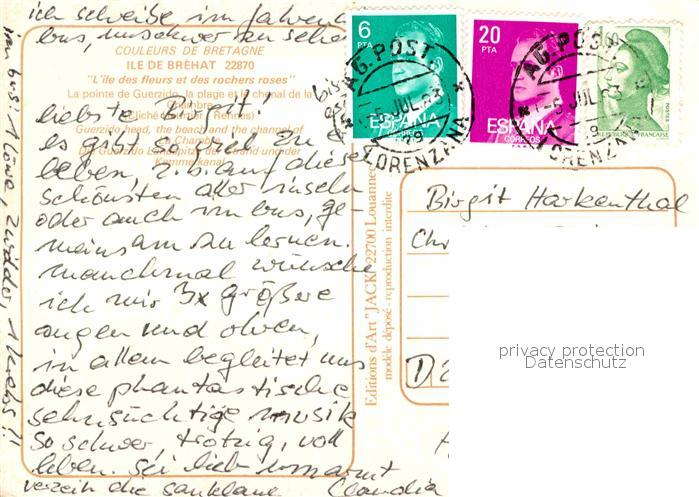 ich schreibe im fahrend
bus, unschwer zu sehe
COULEURS DE BRETAGNE
ILE DE BRÉHAT 22870
"L'île des fleurs et des rochers roses"
La pointe de Guerzido, la plage et le chenal de la
Guerzido head, the beach and the channel of
liebste Birgit!
es gibt so viel zu er
leben, z.b. auf dieser
schönsten aller inseln
oder auch im bus, ge-
meinsam zu lernen.
manchmal wünsche
ich mir 3x größere
augen und ohren,
in allem begleitet uns
diese phantastische
sehnsüchtige musik
so schwer, trotzig, voll
leben. sei lieb umarmt
verzeih die sauklaue Claudia
im bus: 1 löwe, 2 widder, 1 krebs!!
Editions d'Art "JACK" 22700 Louannec
modèle déposé - reproduction interdite
6
PTA
ESPAÑA
CORREOS
20
PTA
ESPAÑA
CORREOS
1,60
AG. POST.
5 JUL. 83
LORENZANA
AG. POST.
5 JUL 83
LORENZANA
Birgit Harkenthal
D 2
privacy protection
Datenschutz